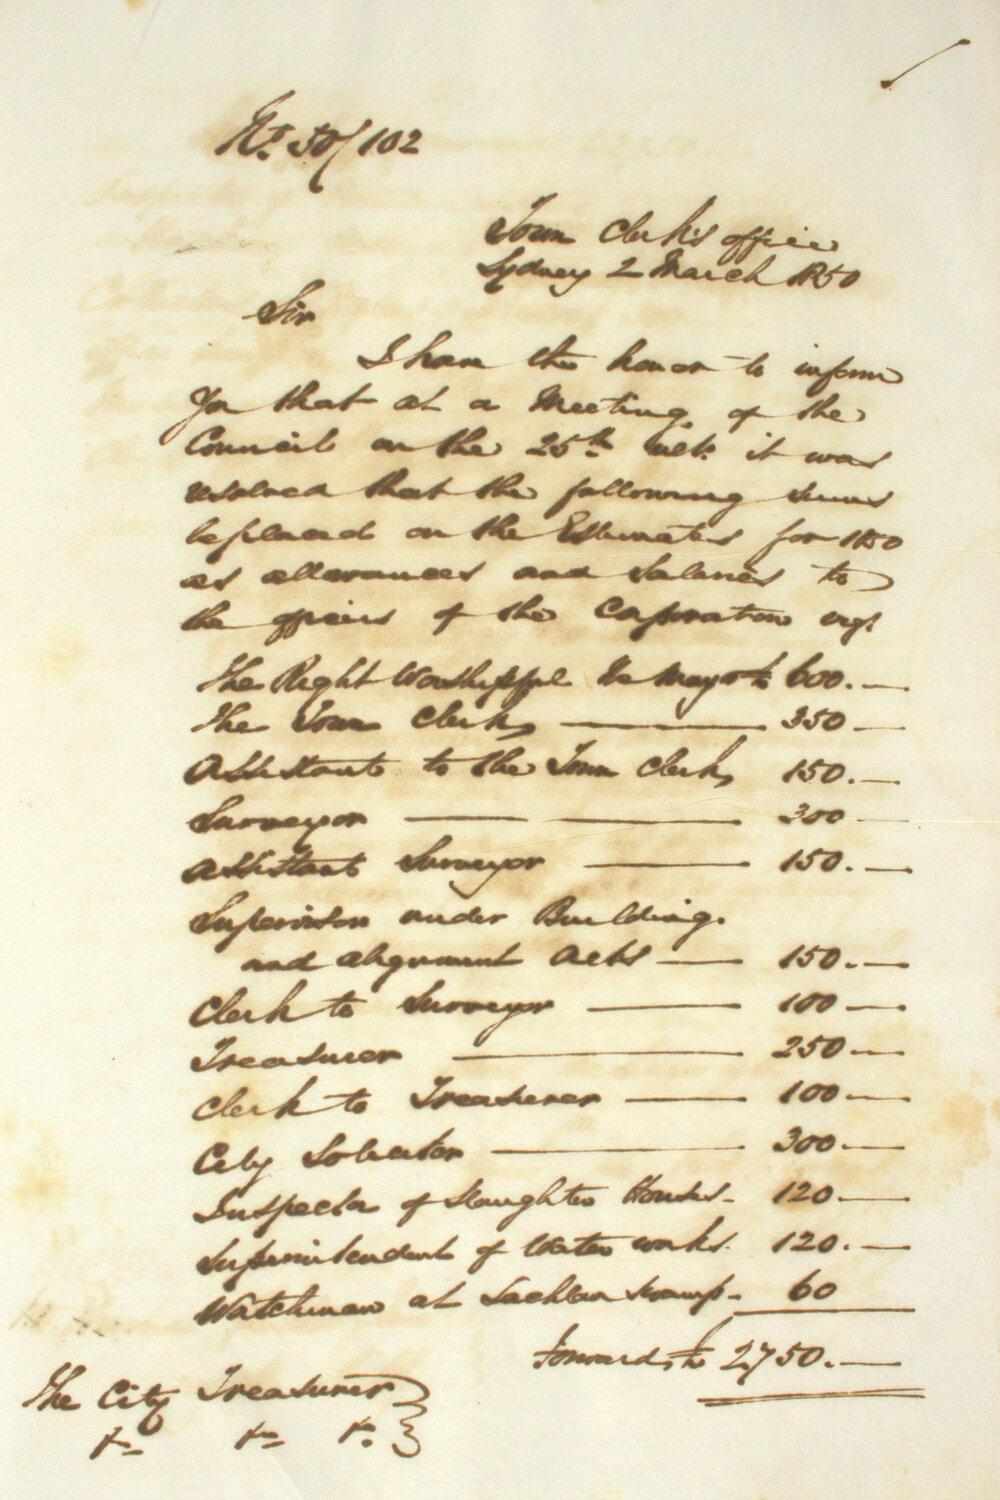 No. 50/102
Town Clerk's office
Sydney 2 March 1850
Sir
I have the honor to inform
you that at a Meeting of the
Council on the 25th ulto. it was
resolved that the following sums
be placed on the Estimates for 1850
as allowances and salaries to
the officers of the Corporation viz.
The Right Worshipful the Mayor £ 600.—
The Town Clerk, — 350 —
Assistant to the Town Clerk, 150.—
Surveyor — — 300 —
Assistant Surveyor — 150.—
Supervisor under Building
and alignment Acts — 150.—
Clerk to Surveyor — 100 —
Treasurer — 250 —
Clerk to Treasurer — 100 —
City Solicitor — 300 —
Inspector of Slaughter Houses - 120 —
Superintendent of Water works. 120.—
Watchman at Lachlan Swamp - 60
Forward, £ 2750.—
The City Treasurer